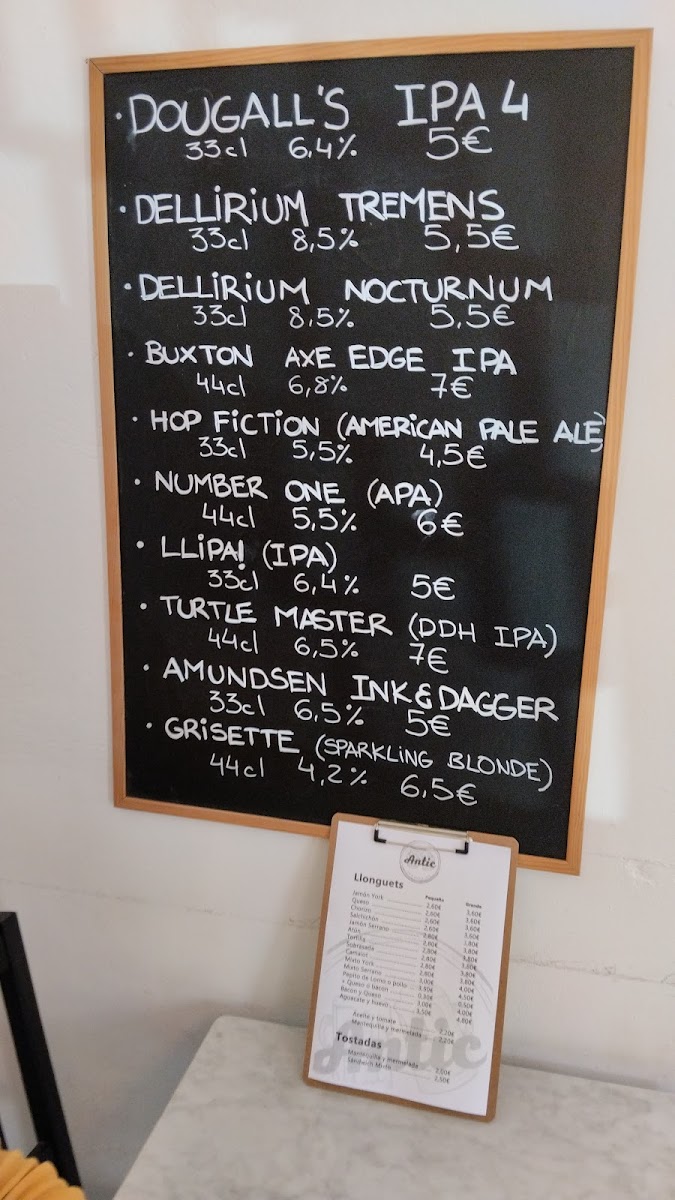 · DOUGALL'S IPA 4
33cl 6,4% 5€
· DELLiRiUM TREMENS
33cl 8,5% 5,5€
· DELLiRiUM NOCTURNUM
33cl 8,5% 5,5€
· BUXTON AXE EDGE IPA
44cl 6,8% 7€
· HOP FiCTiON (AMERiCAN PALE ALE)
33cl 5,5% 4,5€
· NUMBER ONE (APA)
44cl 5,5% 6€
· LLiPA! (IPA)
33cl 6,4% 5€
· TURTLE MASTER (DDH IPA)
44cl 6,5% 7€
· AMUNDSEN INK & DAGGER
33cl 6,5% 5€
· GRiSETTE (SPARKLiNG BLONDE)
44cl 4,2% 6,5€
Antic
Llonguets
Pequeño Grande
Jamón York 2,60€ 3,60€
Queso 2,60€ 3,60€
Chorizo 2,60€ 3,60€
Salchichón 2,60€ 3,60€
Jamón Serrano
Atún
Tortilla
Sobrasada
Camaiot
Mixto York
Mixto Serrano
Pepito de Lomo o pollo
+ Queso o bacon
Bacon y Queso
Aguacate y huevo
Aceite y tomate 2,20€
Mantequilla y mermelada 2,20€
Antic
Tostadas
Mantequilla y mermelada 2,50€
Sandwich Mixto 2,50€